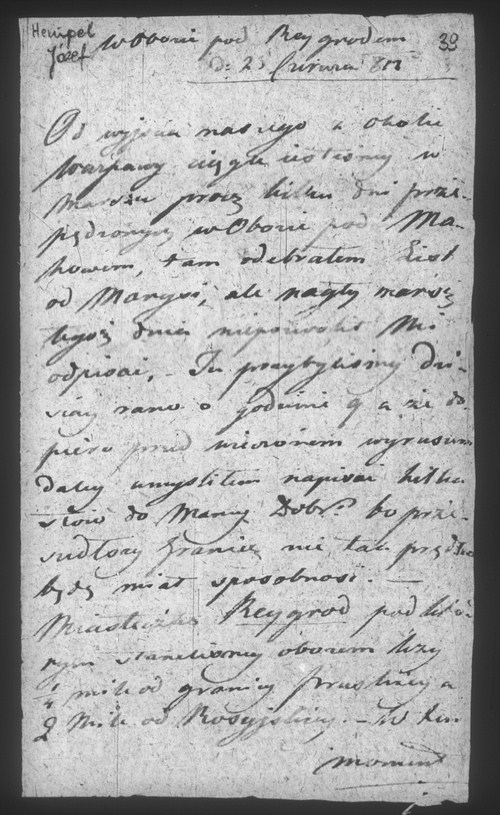 Hempel
Józef
39
w Obozie pod Reygrodem
d: 23 Czerwca 812
Od wyjscia naszego z okolic
Warszawy ciągle iestesmy w
Marszu procz kilku dni prze-
pędzonych w Obozie pod Ma-
kowem, tam odebrałem List
od Marysi, ale nagły marsz
tegoż dnia niepozwolił Mi
odpisać, - Tu przybylismy dzi-
siay rano o godzinie 9 a że do-
piero przed wieczorem wyruszamy
daley umysliłem napisać kilka
słow do Mamy Dobr: bo prze-
szedłszy granicę nie tak prędko
będę miał sposobnosc. —
Miasteczko Reygrod pod któ-
rym stanelismy obozem leży
1/4 mili od granicy Pruskiey a
2 Mile od Rosyjskiey. - W ten
moment